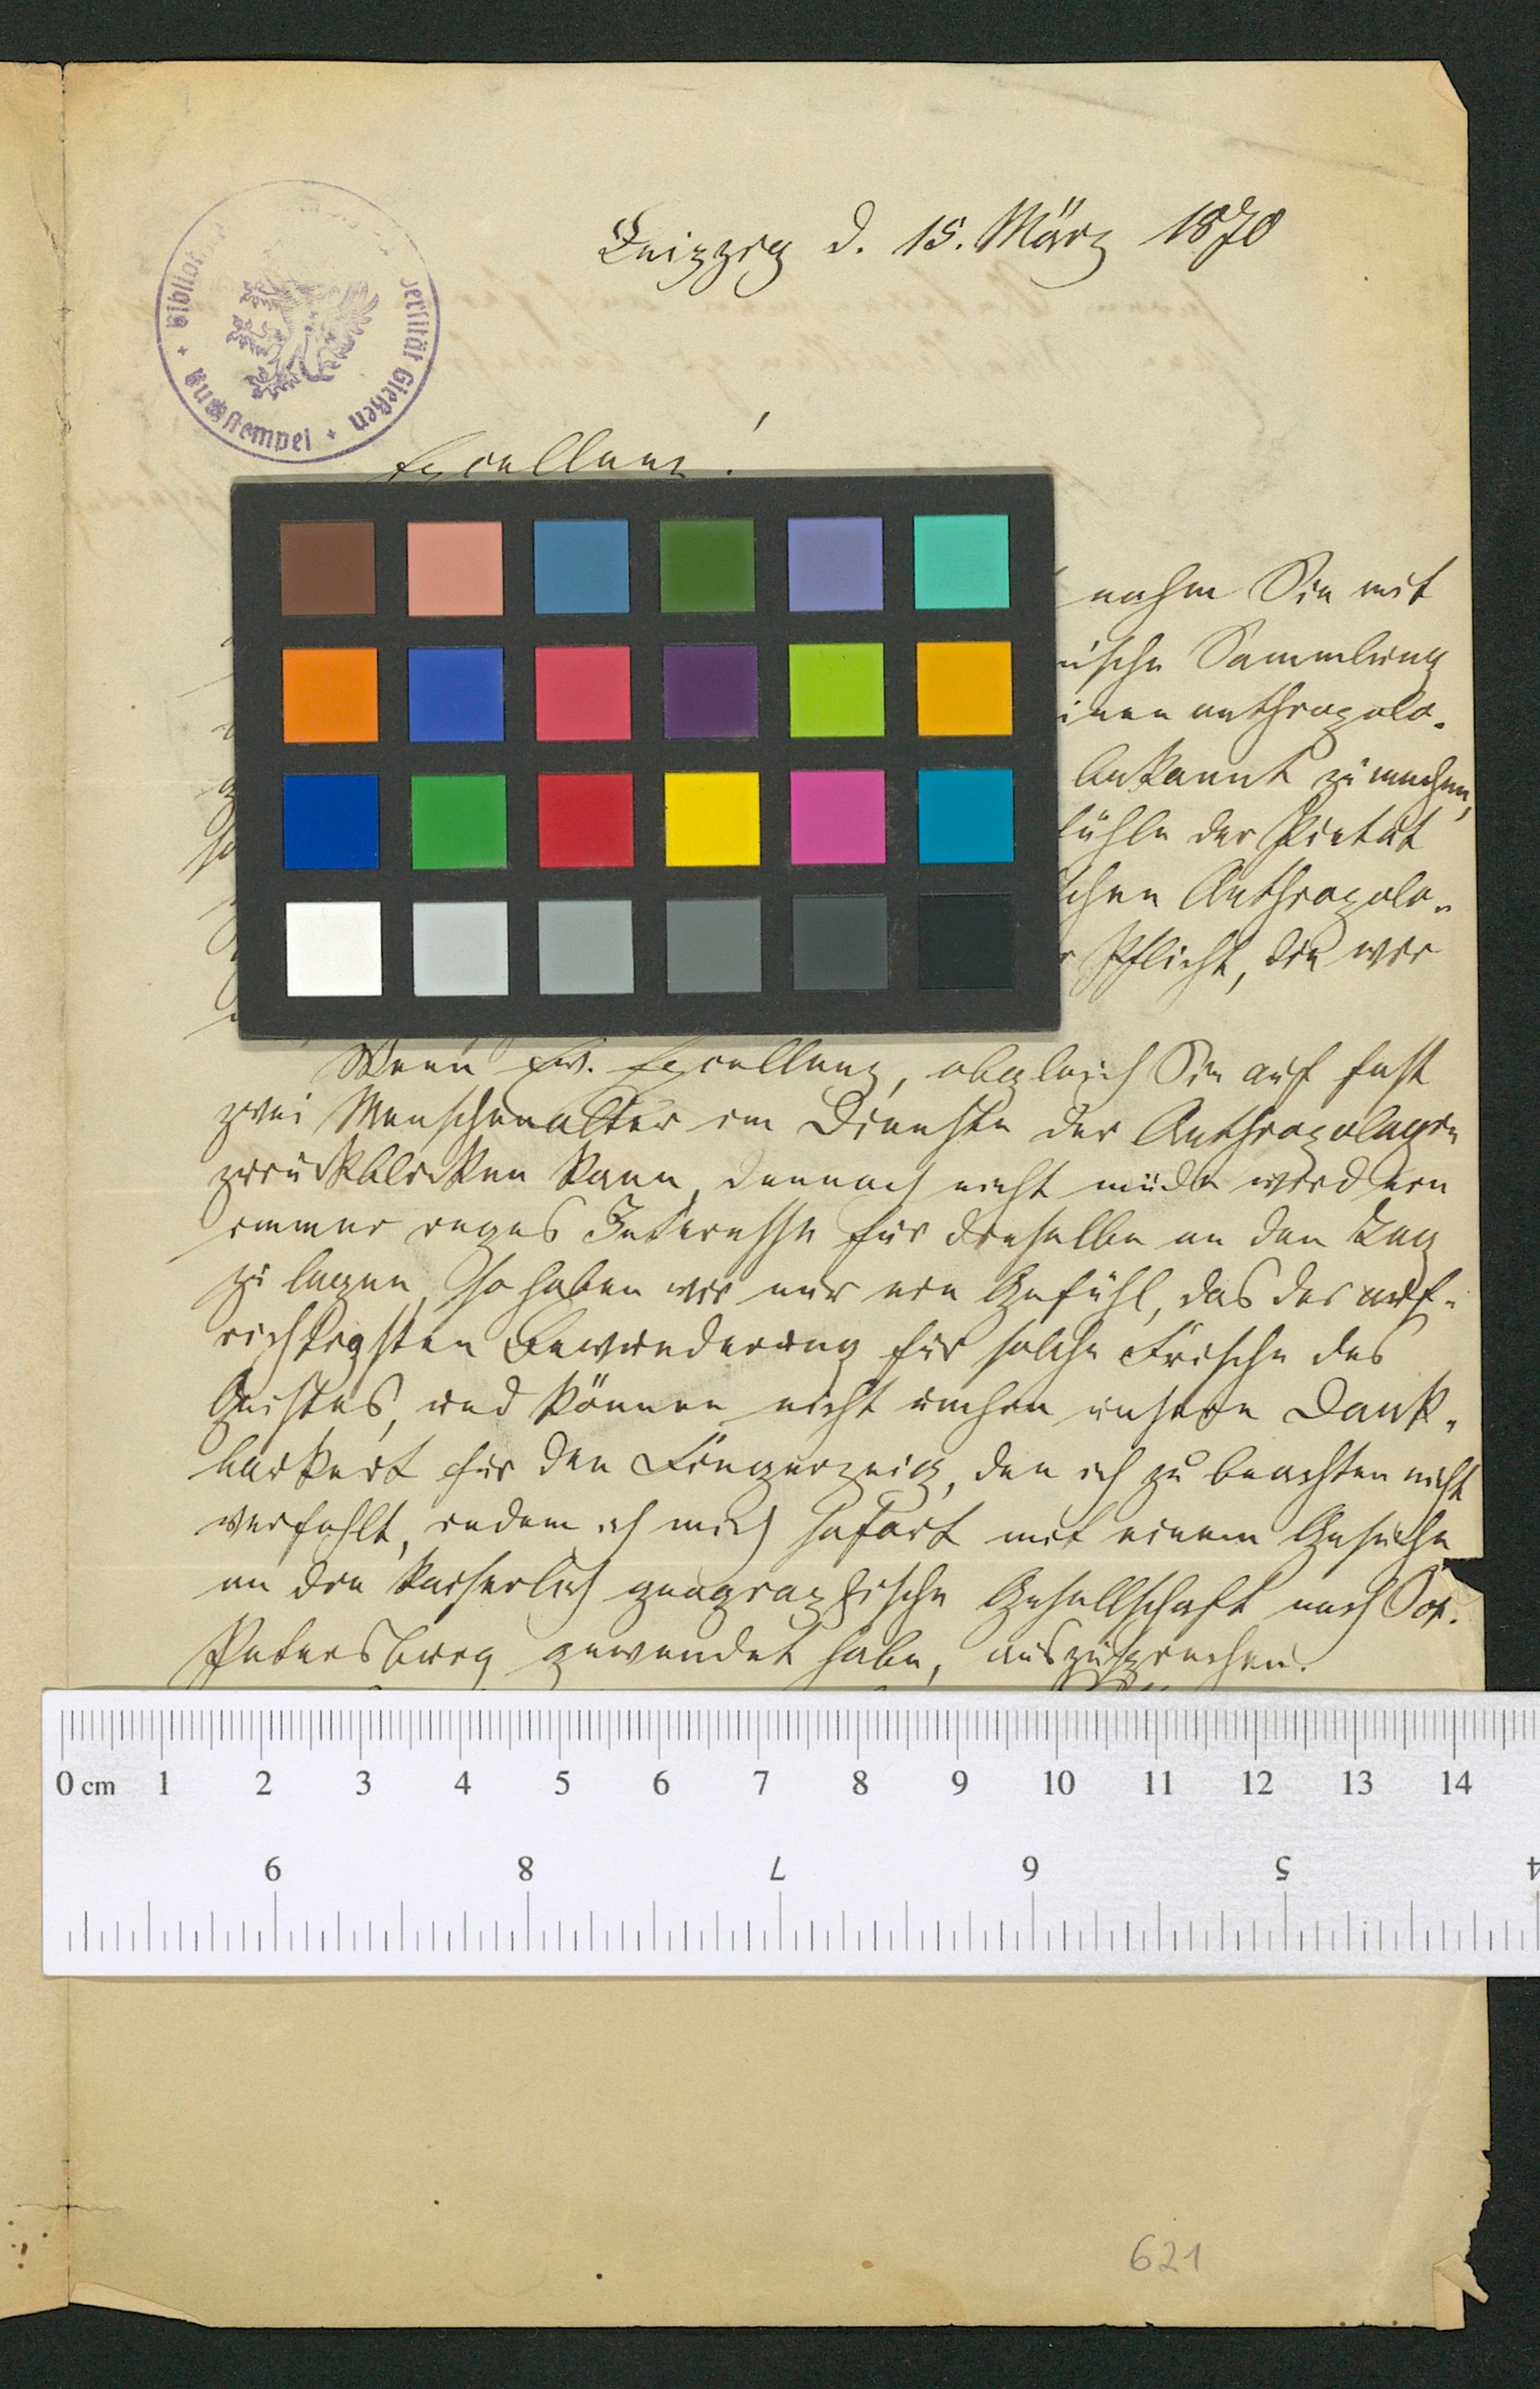 Leipzig d. 15. März 1870
Bibliot
versität Gießen
Buchstempel
Excellenz!
nahm Sie mit
ische Sammlung
inen anthropolo-
bekannt zu machen,
fühle der Pietät
schen Anthropolo-
r Pflicht, die wir
Wenn Ew. Excellenz, obgleich Sie auf fast
zwei Menschenalter im Dienste der Anthropologie
zurückblicken kann, dennoch nicht müde wird ein
immer reges Interesse für dieselbe an den Tag
zu legen, so haben wir nur ein Gefühl, das der auf-
richtigsten Bewunderung für solche Frische des
Geistes, und können nicht umhin unsere Dank-
barkeit für den Fingerzeig, den ich zu beachten nicht
verfehlt, indem ich mich sofort mit einem Gesuche
an die kaiserlich geographische Gesellschaft nach
Petersburg gewendet habe, auszusprechen.
0 cm 1 2 3 4 5 6 7 8 9 10 11 12 13 14
9 8 7 6 5 4
621